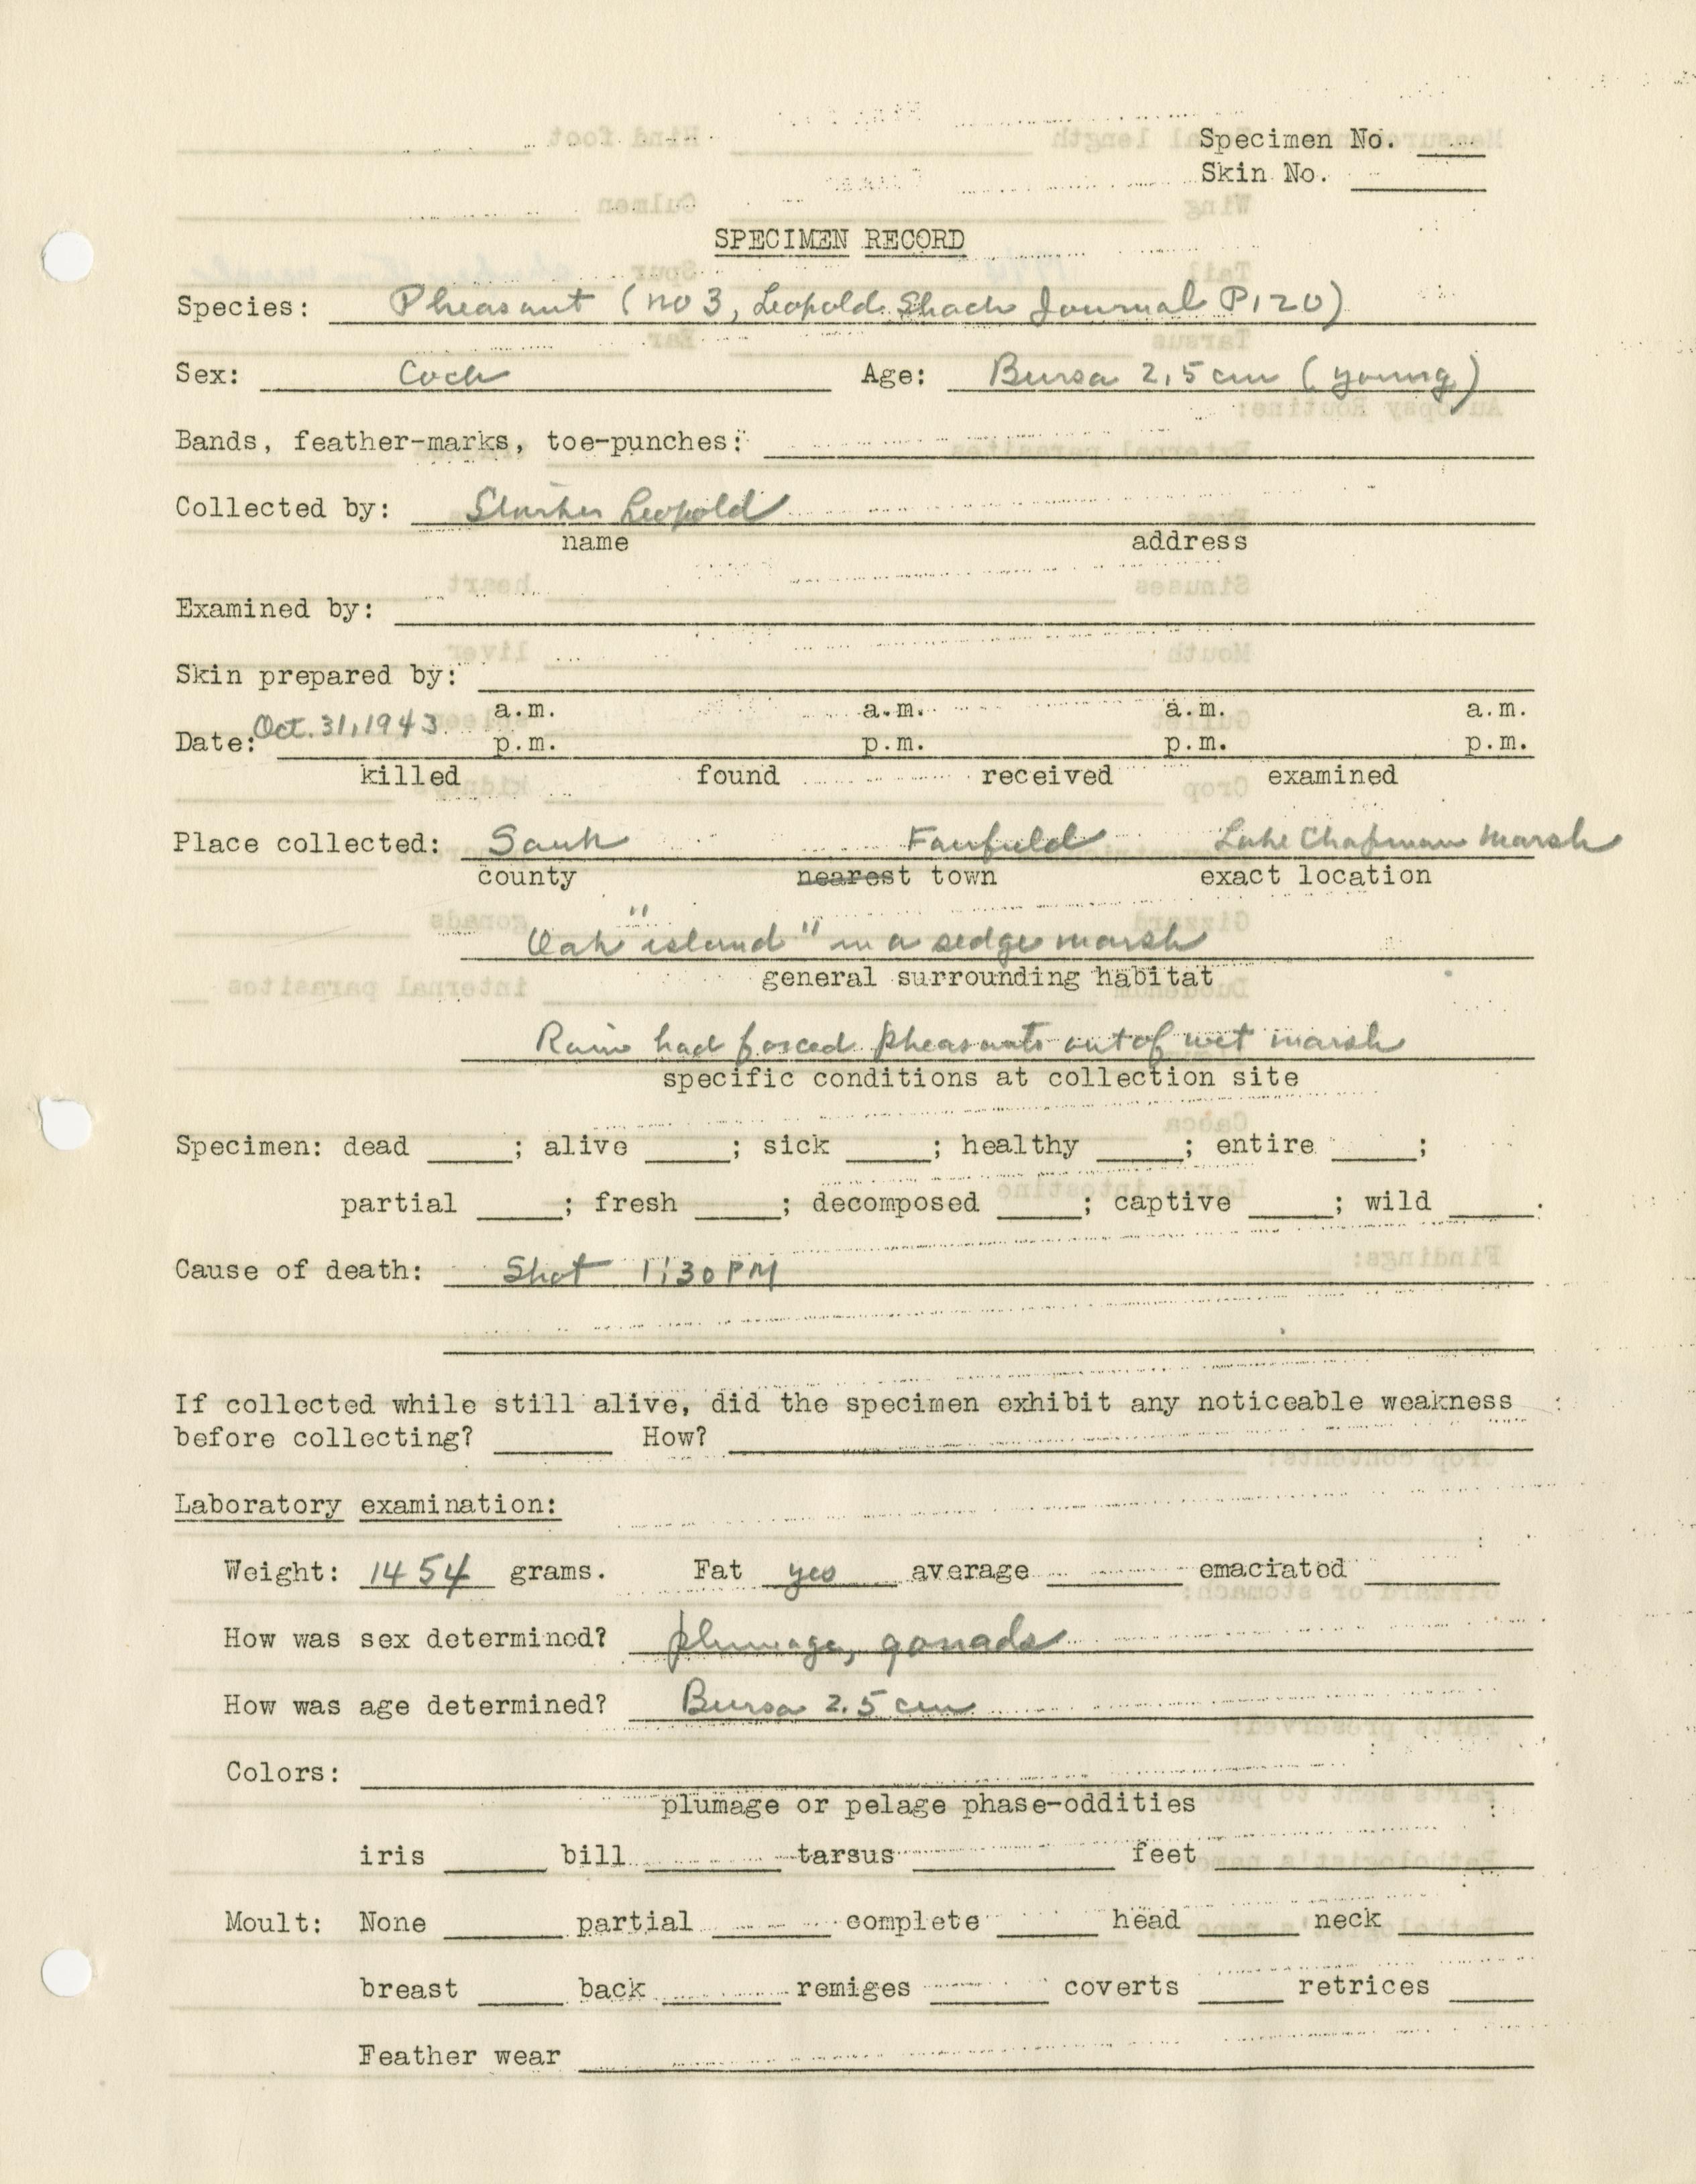 Specimen No. ____
Skin No. ______
SPECIMEN RECORD
Species: Pheasant (no 3, Leopold Shack Journal P120)
Sex: Cock Age: Bursa 2.5 cm (young)
Bands, feather-marks, toe-punches:
Collected by: Starker Leopold
name address
Examined by:
Skin prepared by:
a.m. a.m. a.m. a.m.
Date: Oct. 31, 1943 p.m. p.m. p.m. p.m.
killed found received examined
Place collected: Sauk Fairfield Lake Chapman Marsh
county nearest town exact location
Oak "island" in a sedge marsh
general surrounding habitat
Rain had forced pheasants out of wet marsh
specific conditions at collection site
Specimen: dead ____; alive ____; sick ____; healthy ____; entire ____;
partial ____; fresh ____; decomposed ____; captive ____; wild ____.
Cause of death: Shot 1:30 PM
If collected while still alive, did the specimen exhibit any noticeable weakness
before collecting? ______ How?
Laboratory examination:
Weight: 1454 grams. Fat yes average ______ emaciated ______
How was sex determined? plumage, gonads
How was age determined? Bursa 2.5 cm
Colors:
plumage or pelage phase-oddities
iris ____ bill ____ tarsus ____ feet ____
Moult: None ____ partial ____ complete ____ head ____ neck ____
breast ____ back ____ remiges ____ coverts ____ retrices ____
Feather wear